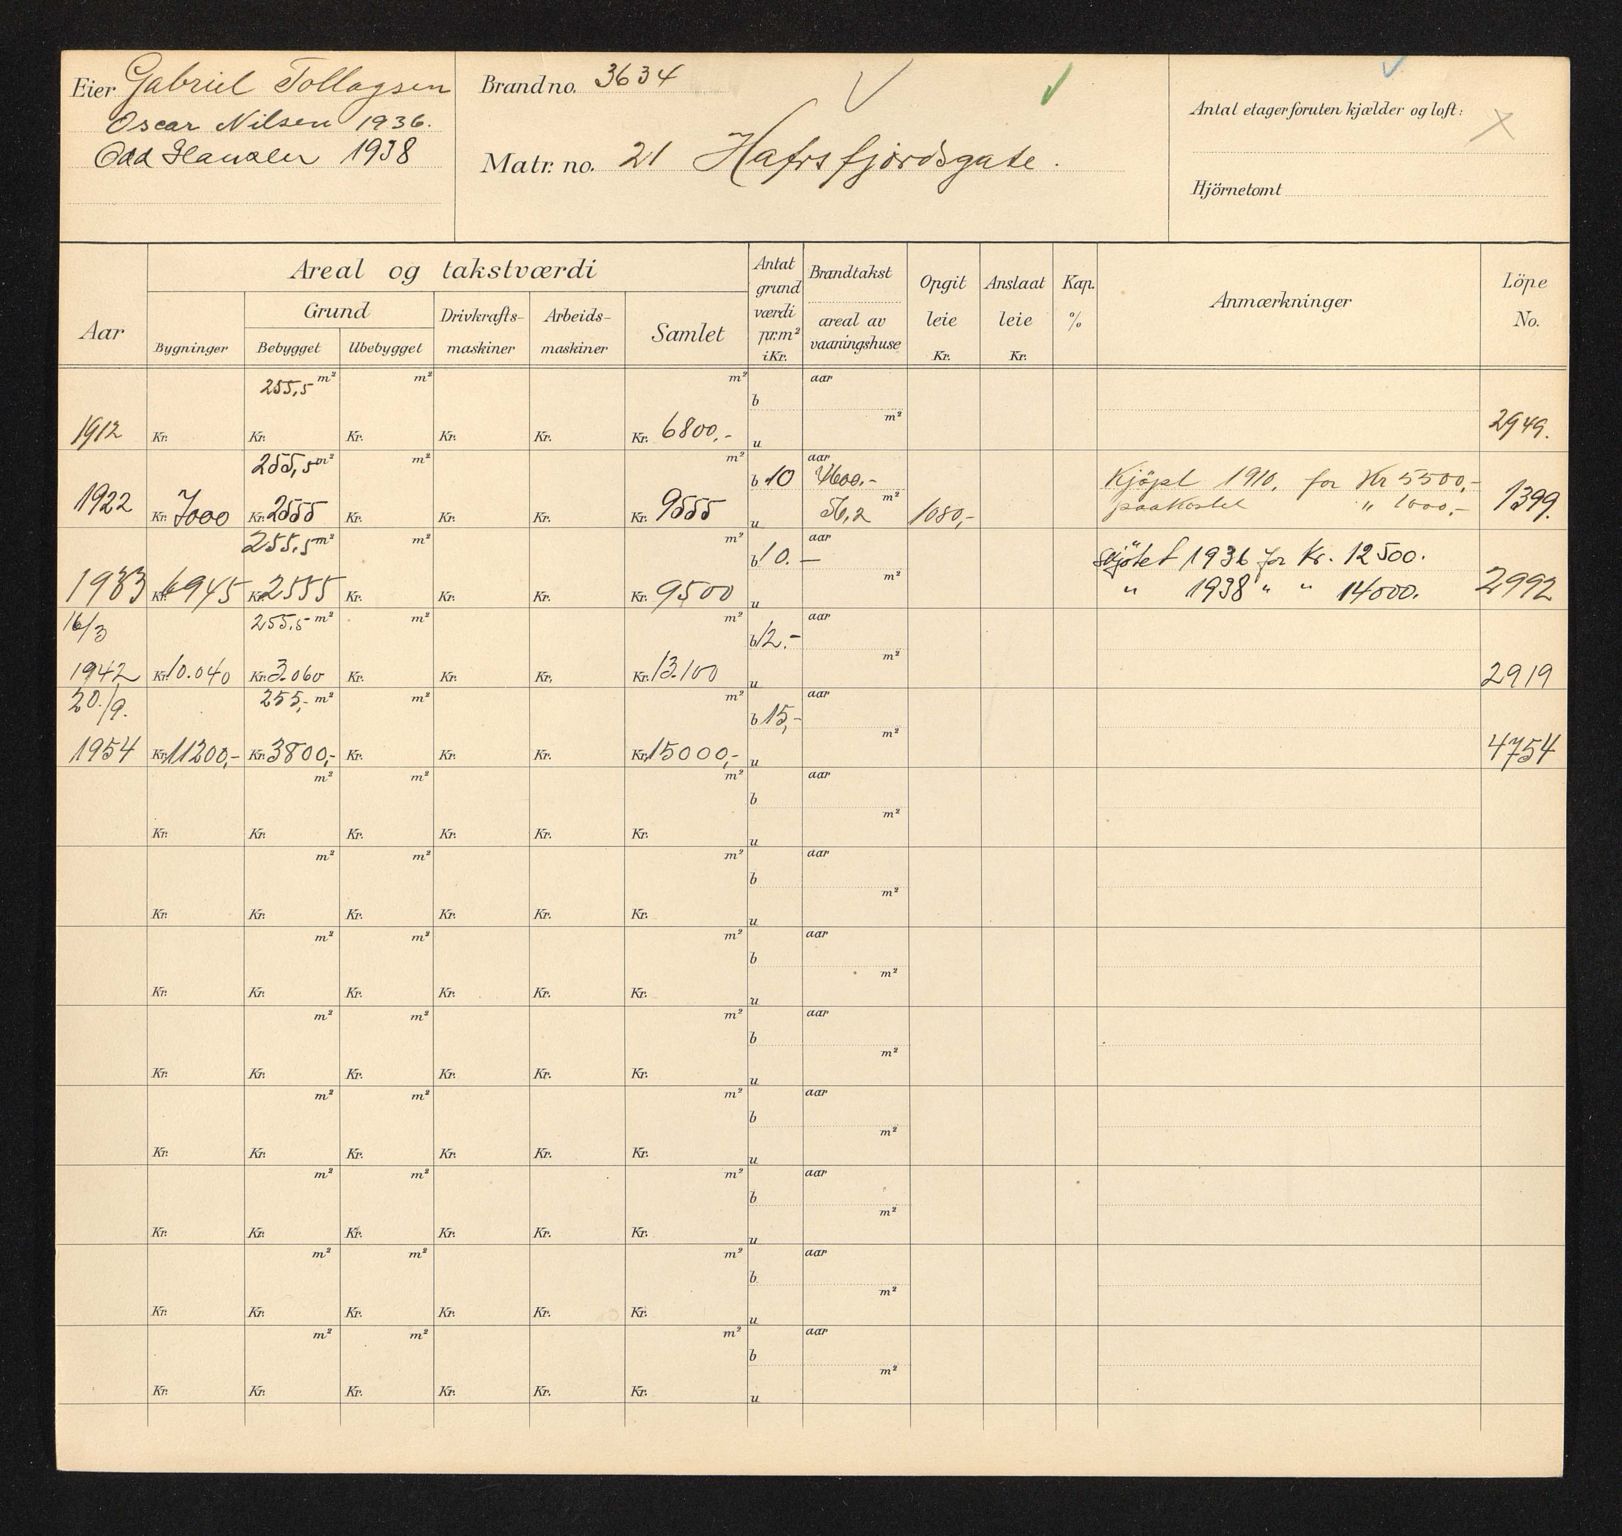 Eier Gabriel Tollagsen
Oscar Nilsen 1936.
Odd Hansen 1938
Brand no. 3634
Matr. no. 21 Hafrsfjordsgate.
Antal etager foruten kjælder og loft:
Hjörnetomt
Aar
Areal og takstværdi
Grund
Bygninger
Bebygget
Ubebygget
Drivkrafts-
maskiner
Arbeids-
maskiner
Samlet
Antat
grund
værdi
pr. m²
i Kr.
Brandtakst
areal av
vaaningshuse
Opgit
leie
Kr.
Anslaat
leie
Kr.
Kap.
%
Anmærkninger
Löpe
No.
255,5 m² m² m² aar
b
m²
1912 Kr. Kr. Kr. Kr. Kr. Kr. 6800,- u 2949.
255,5 m² m² m² b 10 aar 4600.- Kjöpt 1910, for Kr 5500,-
1922 Kr. 7000 Kr. 2555 Kr. Kr. Kr. Kr. 9555 u m² 1080,- paakostet " 1000,- 1399.
255,5 m² m² m² b 10.- aar skjötet 1936 for Kr. 12500.
1933 Kr. 6945 Kr. 2555 Kr. Kr. Kr. Kr. 9500 u m² " 1938 " " 14000. 2992
16/3 255,5 m² m² m² b 12.- aar
1942 Kr. 10.040 Kr. 3.060 Kr. Kr. Kr. Kr. 13.100 u m² 2919
20./9. 255,- m² m² m² b 15,- aar
1954 Kr. 11200,- Kr. 3800,- Kr. Kr. Kr. Kr. 15000,- u m² 4754
m² m² m² b aar
Kr. Kr. Kr. Kr. Kr. Kr. u m²
m² m² m² b aar
Kr. Kr. Kr. Kr. Kr. Kr. u m²
m² m² m² b aar
Kr. Kr. Kr. Kr. Kr. Kr. u m²
m² m² m² b aar
Kr. Kr. Kr. Kr. Kr. Kr. u m²
m² m² m² b aar
Kr. Kr. Kr. Kr. Kr. Kr. u m²
m² m² m² b aar
Kr. Kr. Kr. Kr. Kr. Kr. u m²
m² m² m² b aar
Kr. Kr. Kr. Kr. Kr. Kr. u m²
m² m² m² b aar
Kr. Kr. Kr. Kr. Kr. Kr. u m²